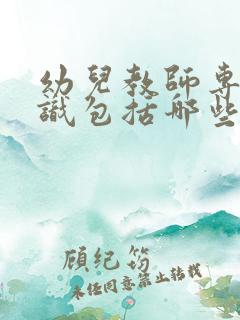 幼兒教師专
識包括哪些
顾纪筠
未经同意禁止转载